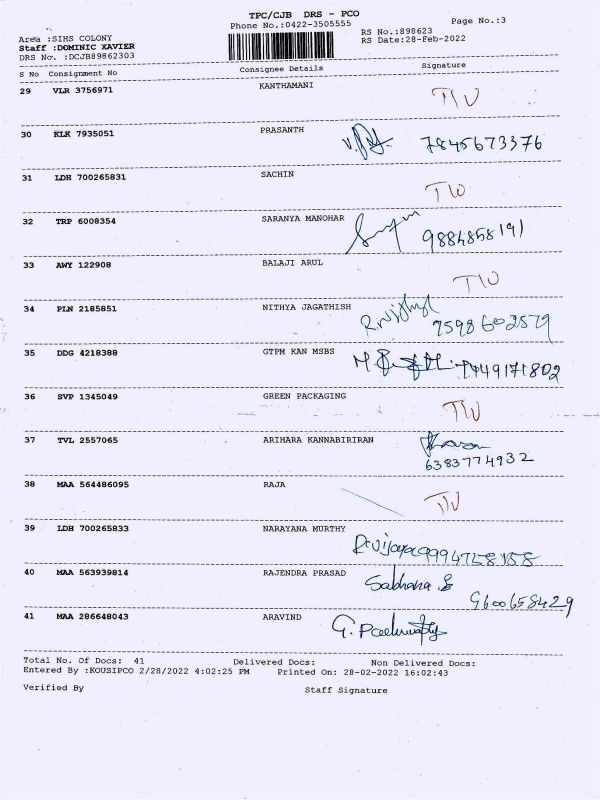 TPC/CJB DRS - PCO
Phone No.:0422-3505555
Page No.:3
Area :SIHS COLONY
RS No.:898623
Staff :DOMINIC XAVIER
RS Date:28-Feb-2022
DRS No. :DCJB89862303
S No Consignment No Consignee Details Signature
29 VLR 3756971 KANTHAMANI
30 KLK 7935051 PRASANTH 7845673376
31 LDH 700265831 SACHIN
32 TRP 6008354 SARANYA MANOHAR 9884858191
33 AWY 122908 BALAJI ARUL
34 PLN 2185851 NITHYA JAGATHISH 7598602579
35 DDG 4218388 GTPM KAN MSBS
36 SVP 1345049 GREEN PACKAGING
37 TVL 2557065 ARIHARA KANNABIRIRAN
6383774932
38 MAA 564486095 RAJA
39 LDH 700265833 NARAYANA MURTHY
40 MAA 563939814 RAJENDRA PRASAD Sabhana
9600658429
41 MAA 286648043 ARAVIND
Total No. Of Docs: 41 Delivered Docs: Non Delivered Docs:
Entered By :KOUSIPCO 2/28/2022 4:02:25 PM Printed On: 28-02-2022 16:02:43
Verified By Staff Signature